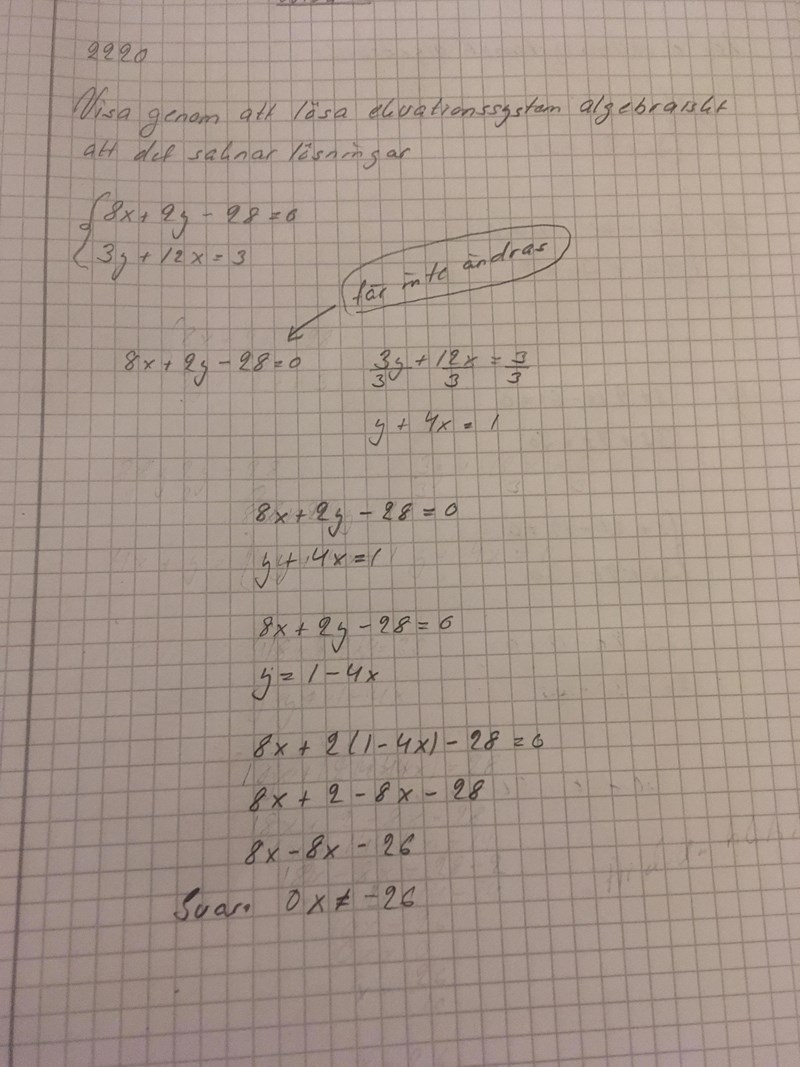 2220
Visa genom att lösa ekvationssystem algebraiskt
att det saknar lösningar
8x + 2y - 28 = 0
3y + 12x = 3
får inte ändras
8x + 2y - 28 = 0 3y/3 + 12x/3 = 3/3
y + 4x = 1
8x + 2y - 28 = 0
y + 4x = 1
8x + 2y - 28 = 0
y = 1 - 4x
8x + 2(1 - 4x) - 28 = 0
8x + 2 - 8x - 28
8x - 8x - 26
Svar. 0x ≠ -26